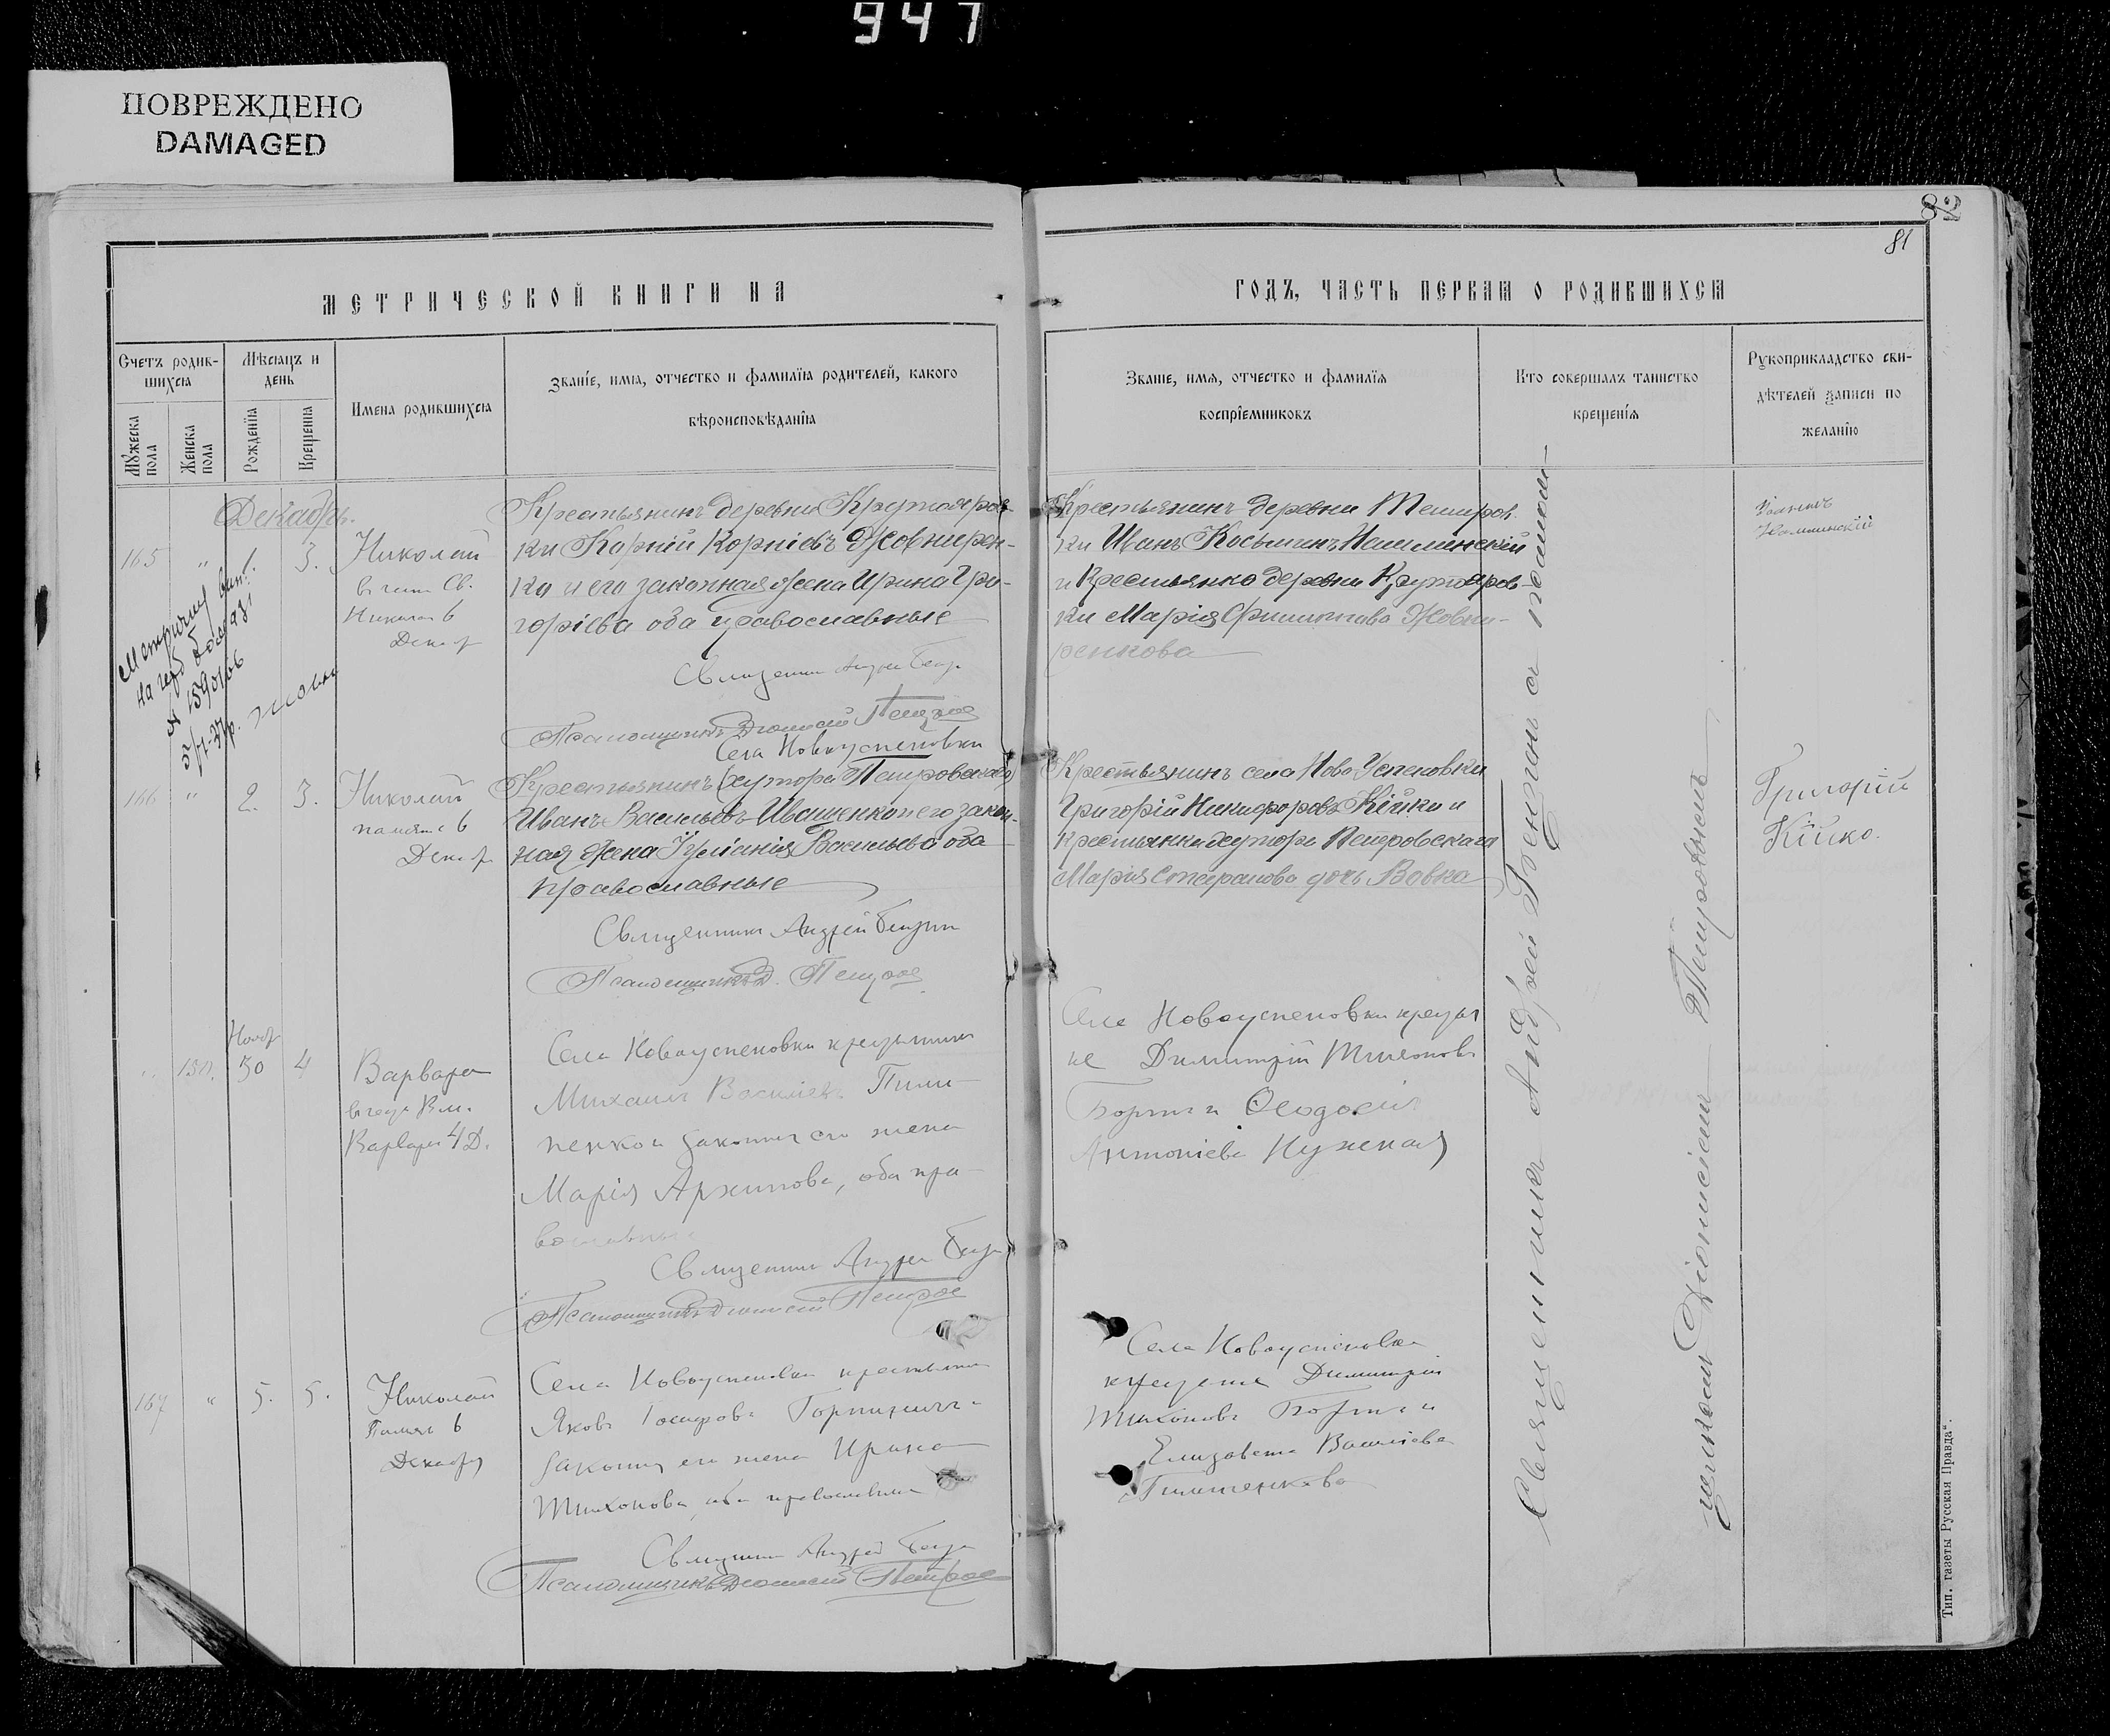 947
ПОВРЕЖДЕНО
DAMAGED
82
81
МЕТРИЧЕСКОЙ КНИГИ НА
ГОДЪ, ЧАСТЬ ПЕРВАЯ О РОДИВШИХСЯ
Счетъ родив-
шихся
Мѣсяцъ и
день
Имена родившихся
Званіе, имя, отчество и фамилія родителей, какого
вѣроисповѣданія
Мужеска
пола
Женска
пола
Рожденія
Крещенія
Званіе, имя, отчество и фамилія
воспріемниковъ
Кто совершалъ таинство
крещенія
Рукоприкладство сви-
дѣтелей записи по
желанію
Декабрь.
165 " 1. 3. Николай
въ честь Св.
Николая 6
Декабр
Крестьянинъ деревни Крутояров-
ки Корній Корніевъ Жовнирен-
ко и его законная жена Ирина Гри-
горіева оба православные
Священникъ Андрей
Псаломщикъ Діонисій Петров
Крестьянинъ деревни Темиров-
ки Иванъ Косьминъ
и Крестьянка деревни Крутояров-
ки Марія Филиппова Жовни-
ренкова
166 " 2. 3. Николай
память 6
Декабр
Села Новоуспеновки
Крестьянинъ (хутора Петровскаго)
Иванъ Васильевъ Иващенко и его закон-
ная жена Васильева оба
православные
Священникъ Андрей
Псаломщикъ Д. Петров
Крестьянинъ села Ново Успеновки
Григорій Никифоровъ Кійко и
крестьянка хутора Петровскаго
Марія дочь Вовка
Григорій
Кійко.
Нояб
30 4 Варвара
въ честь Влм.
Варвары 4 Д.
Села Новоуспеновки крестьянинъ
Михаилъ Василіевъ Пили-
пенко и законная его жена
Марія Архипова, оба пра-
вославные
Священникъ Андрей
Псаломщикъ Діонисій Петров
Села Новоуспеновки крестья
не Димитрій Тихоновъ
и Ѳеодосія
Антоніева
167 " 5. 5. Николай
Память 6
Декабря
Села Новоуспеновки крестьянинъ
Яковъ Іосифовъ и
законная его жена Ирина
Тихонова, оба православные
Священникъ Андрей
Псаломщикъ Діонисій Петров
Села Новоуспеновки
крестьяне Димитрій
Тихоновъ и
Елизавета Василіева
Пилипенкова
Священникъ Андрей съ псалом-
щикомъ Діонисіемъ Петровымъ
Тип. газеты Русская Правда".